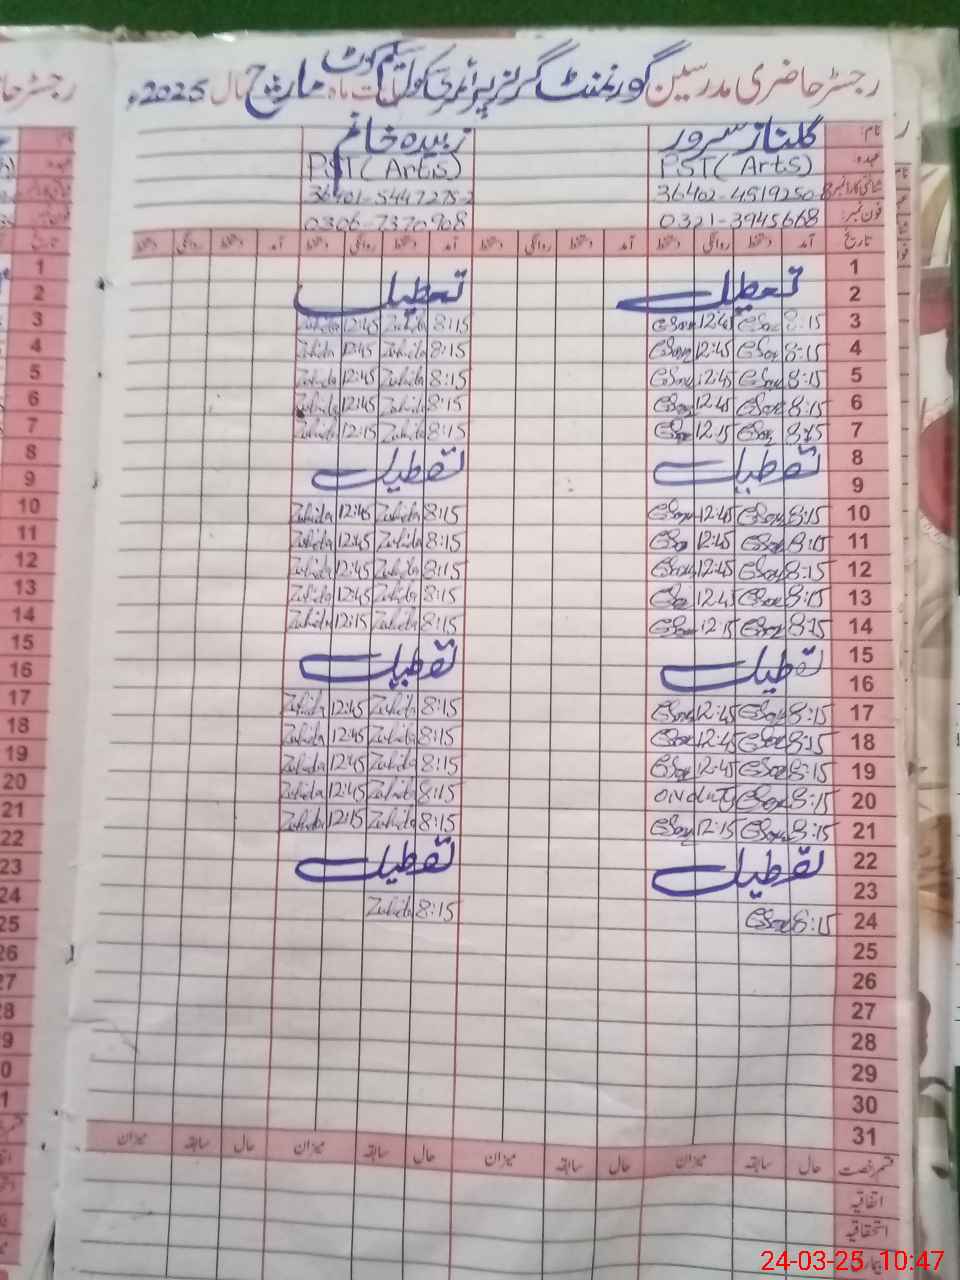 رجسٹر حاضری مدرسین گورنمنٹ گرلز پرائمری سکول سلیم کوٹ بابت ماہ مارچ سال 2025ء
نام: گلناز سرور زبیدہ خانم
عہدہ: PST (Arts) PST (Arts)
شناختی کارڈ نمبر 36402-4519250-8 36401-5447275-2
فون نمبر: 0321-3945668 0306-7370908
تاریخ آمد دستخط روانگی دستخط آمد دستخط روانگی دستخط آمد دستخط روانگی دستخط آمد دستخط روانگی دستخط
1
2 تعطیل تعطیل
3 8:15 12:45 8:15 Zubida 12:45 Zubida
4 8:15 12:45 8:15 Zubida 12:45 Zubida
5 8:15 12:45 8:15 Zubida 12:45 Zubida
6 8:15 12:45 8:15 Zubida 12:45 Zubida
7 8:15 12:15 8:15 Zubida 12:15 Zubida
8 تعطیل تعطیل
9
10 8:15 12:45 8:15 Zubida 12:45 Zubida
11 8:15 12:45 8:15 Zubida 12:45 Zubida
12 8:15 12:45 8:15 Zubida 12:45 Zubida
13 8:15 12:45 8:15 Zubida 12:45 Zubida
14 8:15 12:15 8:15 Zubida 12:15 Zubida
15 تعطیل تعطیل
16
17 8:15 12:45 8:15 Zubida 12:45 Zubida
18 8:15 12:45 8:15 Zubida 12:45 Zubida
19 8:15 12:45 8:15 Zubida 12:45 Zubida
20 8:15 ON duty 8:15 Zubida 12:45 Zubida
21 8:15 12:15 8:15 Zubida 12:15 Zubida
22 تعطیل تعطیل
23
24 8:15 8:15 Zubida
25
26
27
28
29
30
31
قسم رخصت حال سابقہ میزان حال سابقہ میزان حال سابقہ میزان حال سابقہ میزان
اتفاقیہ
استحقاقیہ
24-03-25 10:47